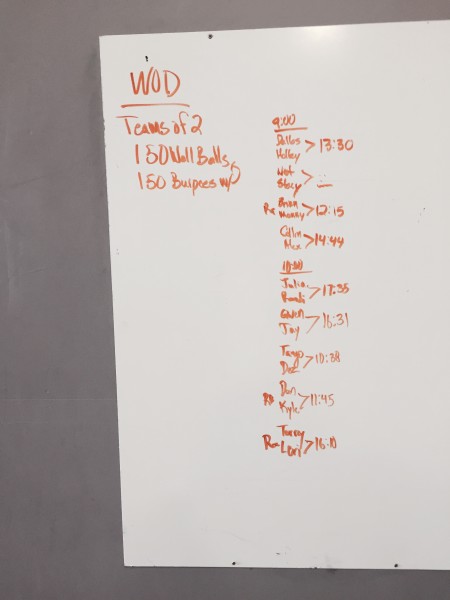 WOD
Teams of 2
150 Wall Balls
150 Burpees w/
9:00
Dallas
Holley > 13:30
Stacy
Rx Brian
Manny > 12:15
Collin
Alex > 14:44
10:00
Julia
> 17:35
Gwen
Jay > 16:31
Tango
Doz > 10:38
Rx Dan
Kyle > 11:45
Rx Tammy
Lori > 16:10